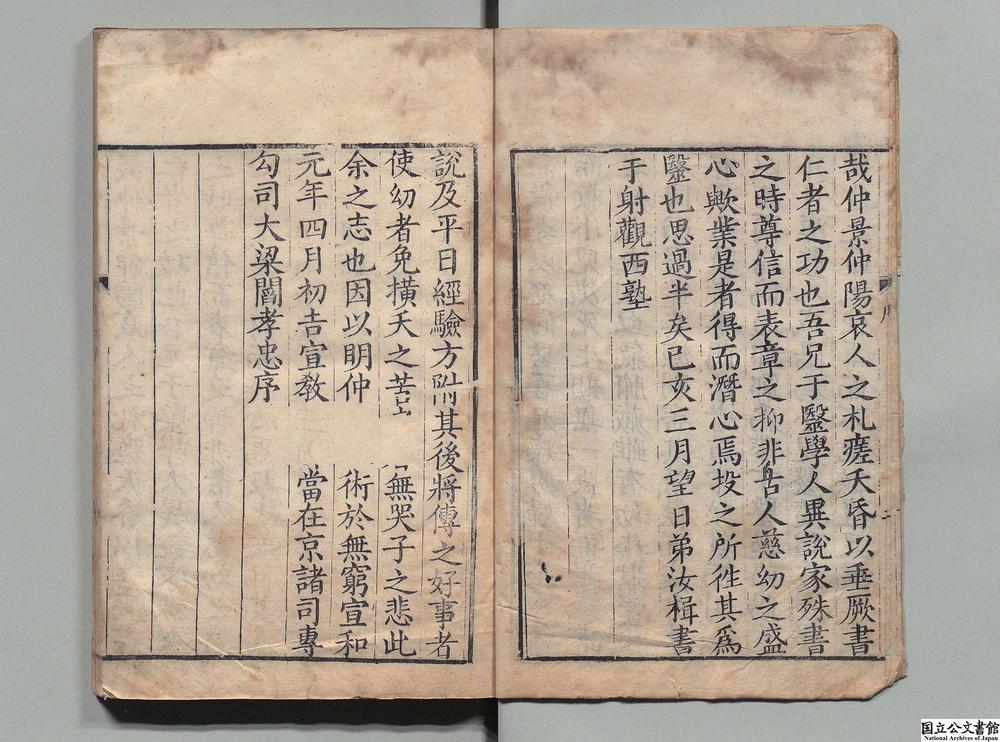 哉仲景仲陽哀人之札瘥夭昏以垂厥書
仁者之功也吾兄于醫學人異說家殊書
之時尊信而表章之抑非古人慈幼之盛
心歟業是者得而潛心焉投之所徃其爲
醫也思過半矣已亥三月望日弟汝楫書
于射觀西塾
說及平日經驗方附其後將傳之好事者
使幼者免橫夭之苦 無哭子之悲此
余之志也因以明仲 術於無窮宣和
元年四月初吉宣敎 當在京諸司專
勾司大梁閻孝忠序
国立公文書館
National Archives of Japan